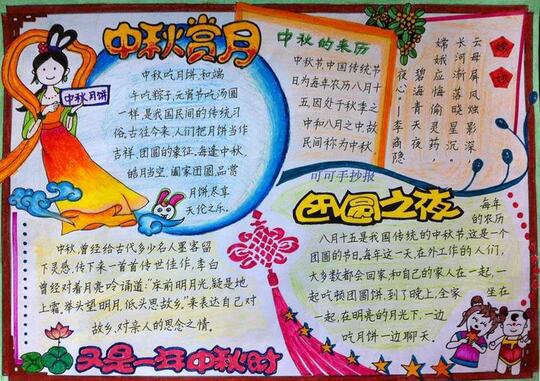 中秋赏月
中秋月饼
中秋吃月饼和端
午吃粽子,元宵节吃汤圆
一样,是我国民间的传统习
俗,古往今来,人们把月饼当作
吉祥、团圆的象征。每逢中秋,
皓月当空,阖家团圆,品赏
月饼尽享
天伦之乐。
中秋的来历
中秋节中国传统节
日为每年农历八月十
五因处于秋季之
中和八月之中故
民间称为中秋
嫦娥
云母屏风烛影深,
长河渐落晓星沉。
嫦娥应悔偷灵药,
碧海青天夜
夜心。—李商隐
可可手抄报
中秋,曾经给古代多少名人墨客留
下灵感,传下来一首首传世佳作,李白
曾经对着月亮吟诵道:“床前明月光,疑是地
上霜,举头望明月,低头思故乡。”来表达自己对
故乡,对亲人的思念之情。
团圆之夜
每年
的农历
八月十五是我国传统的中秋节,这是一个
团圆的节日,每年这一天,在外工作的人们,
大多数都会回家,和自己的家人在一起,一
起吃顿团圆饼,到了晚上,全家坐在
一起,在明亮的月光下,一边
吃月饼一边聊天。
又是一年中秋时